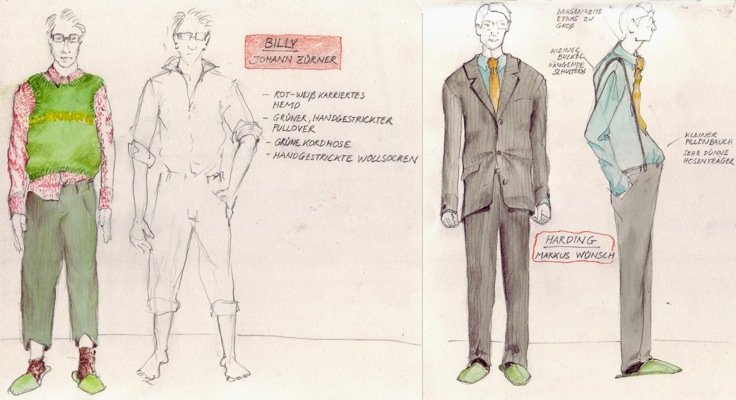 BILLY
JOHANN ZÜRNER
- ROT-WEIß KARRIERTES
HEMD
- GRÜNER, HANDGESTRICKTER
PULLOVER
- GRÜNE KORDHOSE
- HANDGESTRICKTE WOLLSOCKEN
KRAGENWEITE
ETWAS ZU
GROß
KLEINER
BUCKEL
HÄNGENDE
SCHULTERN
KLEINER
PILLENBAUCH
SEHR DÜNNE
HOSENTRÄGER
HARDING
MARKUS WÜNSCH